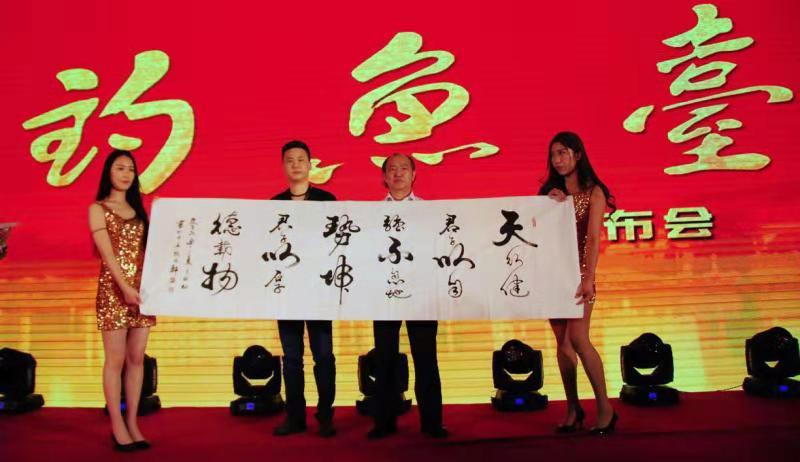 钓鱼臺
布会
天行健
君子以自
强不息地
勢坤
君子以厚
德載物